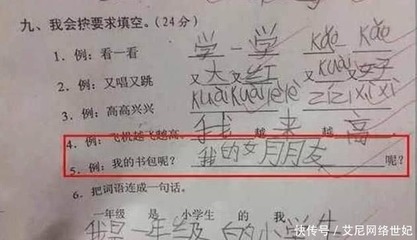 九、我会按要求填空。(24分)
1. 例：看一看 学一学 kàn kàn
2. 例：又唱又跳 又大又红 又 又好
3. 例：高高兴兴 kuàikuàilèlè
4. 例：飞机越飞越高。 我越来越高。
5. 例：我的书包呢？ 我的女朋友呢？
6. 把词语连成一句话。
一年级 是 小学生 的 我
我是一年级的小学生
快传号/艾尼网络世妃